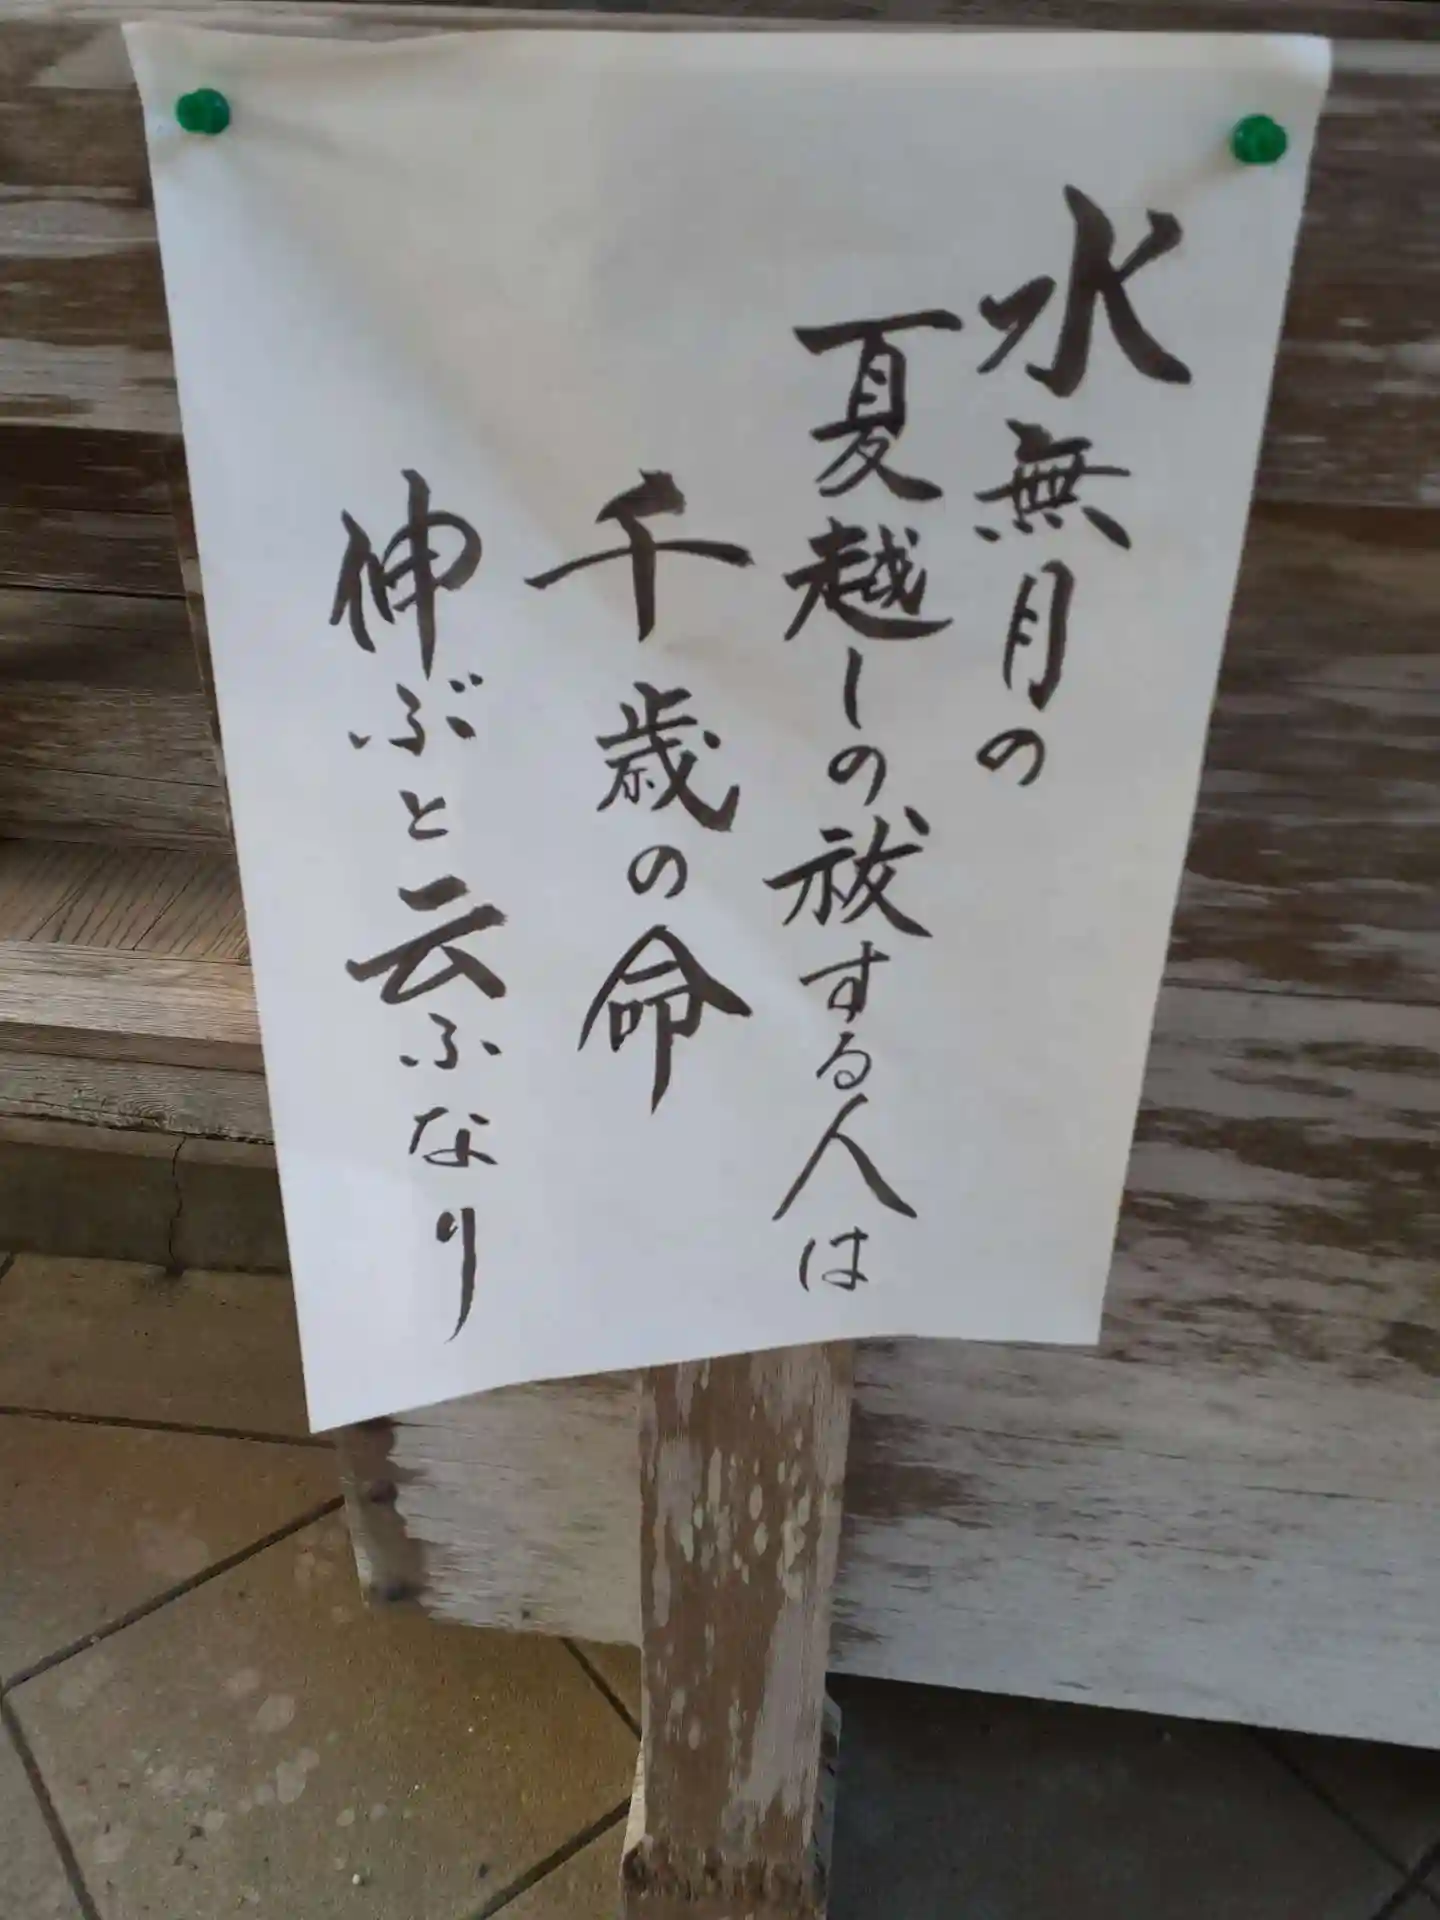 水無月の
夏越しの祓する人は
千歳の命
伸ぶと云ふなり